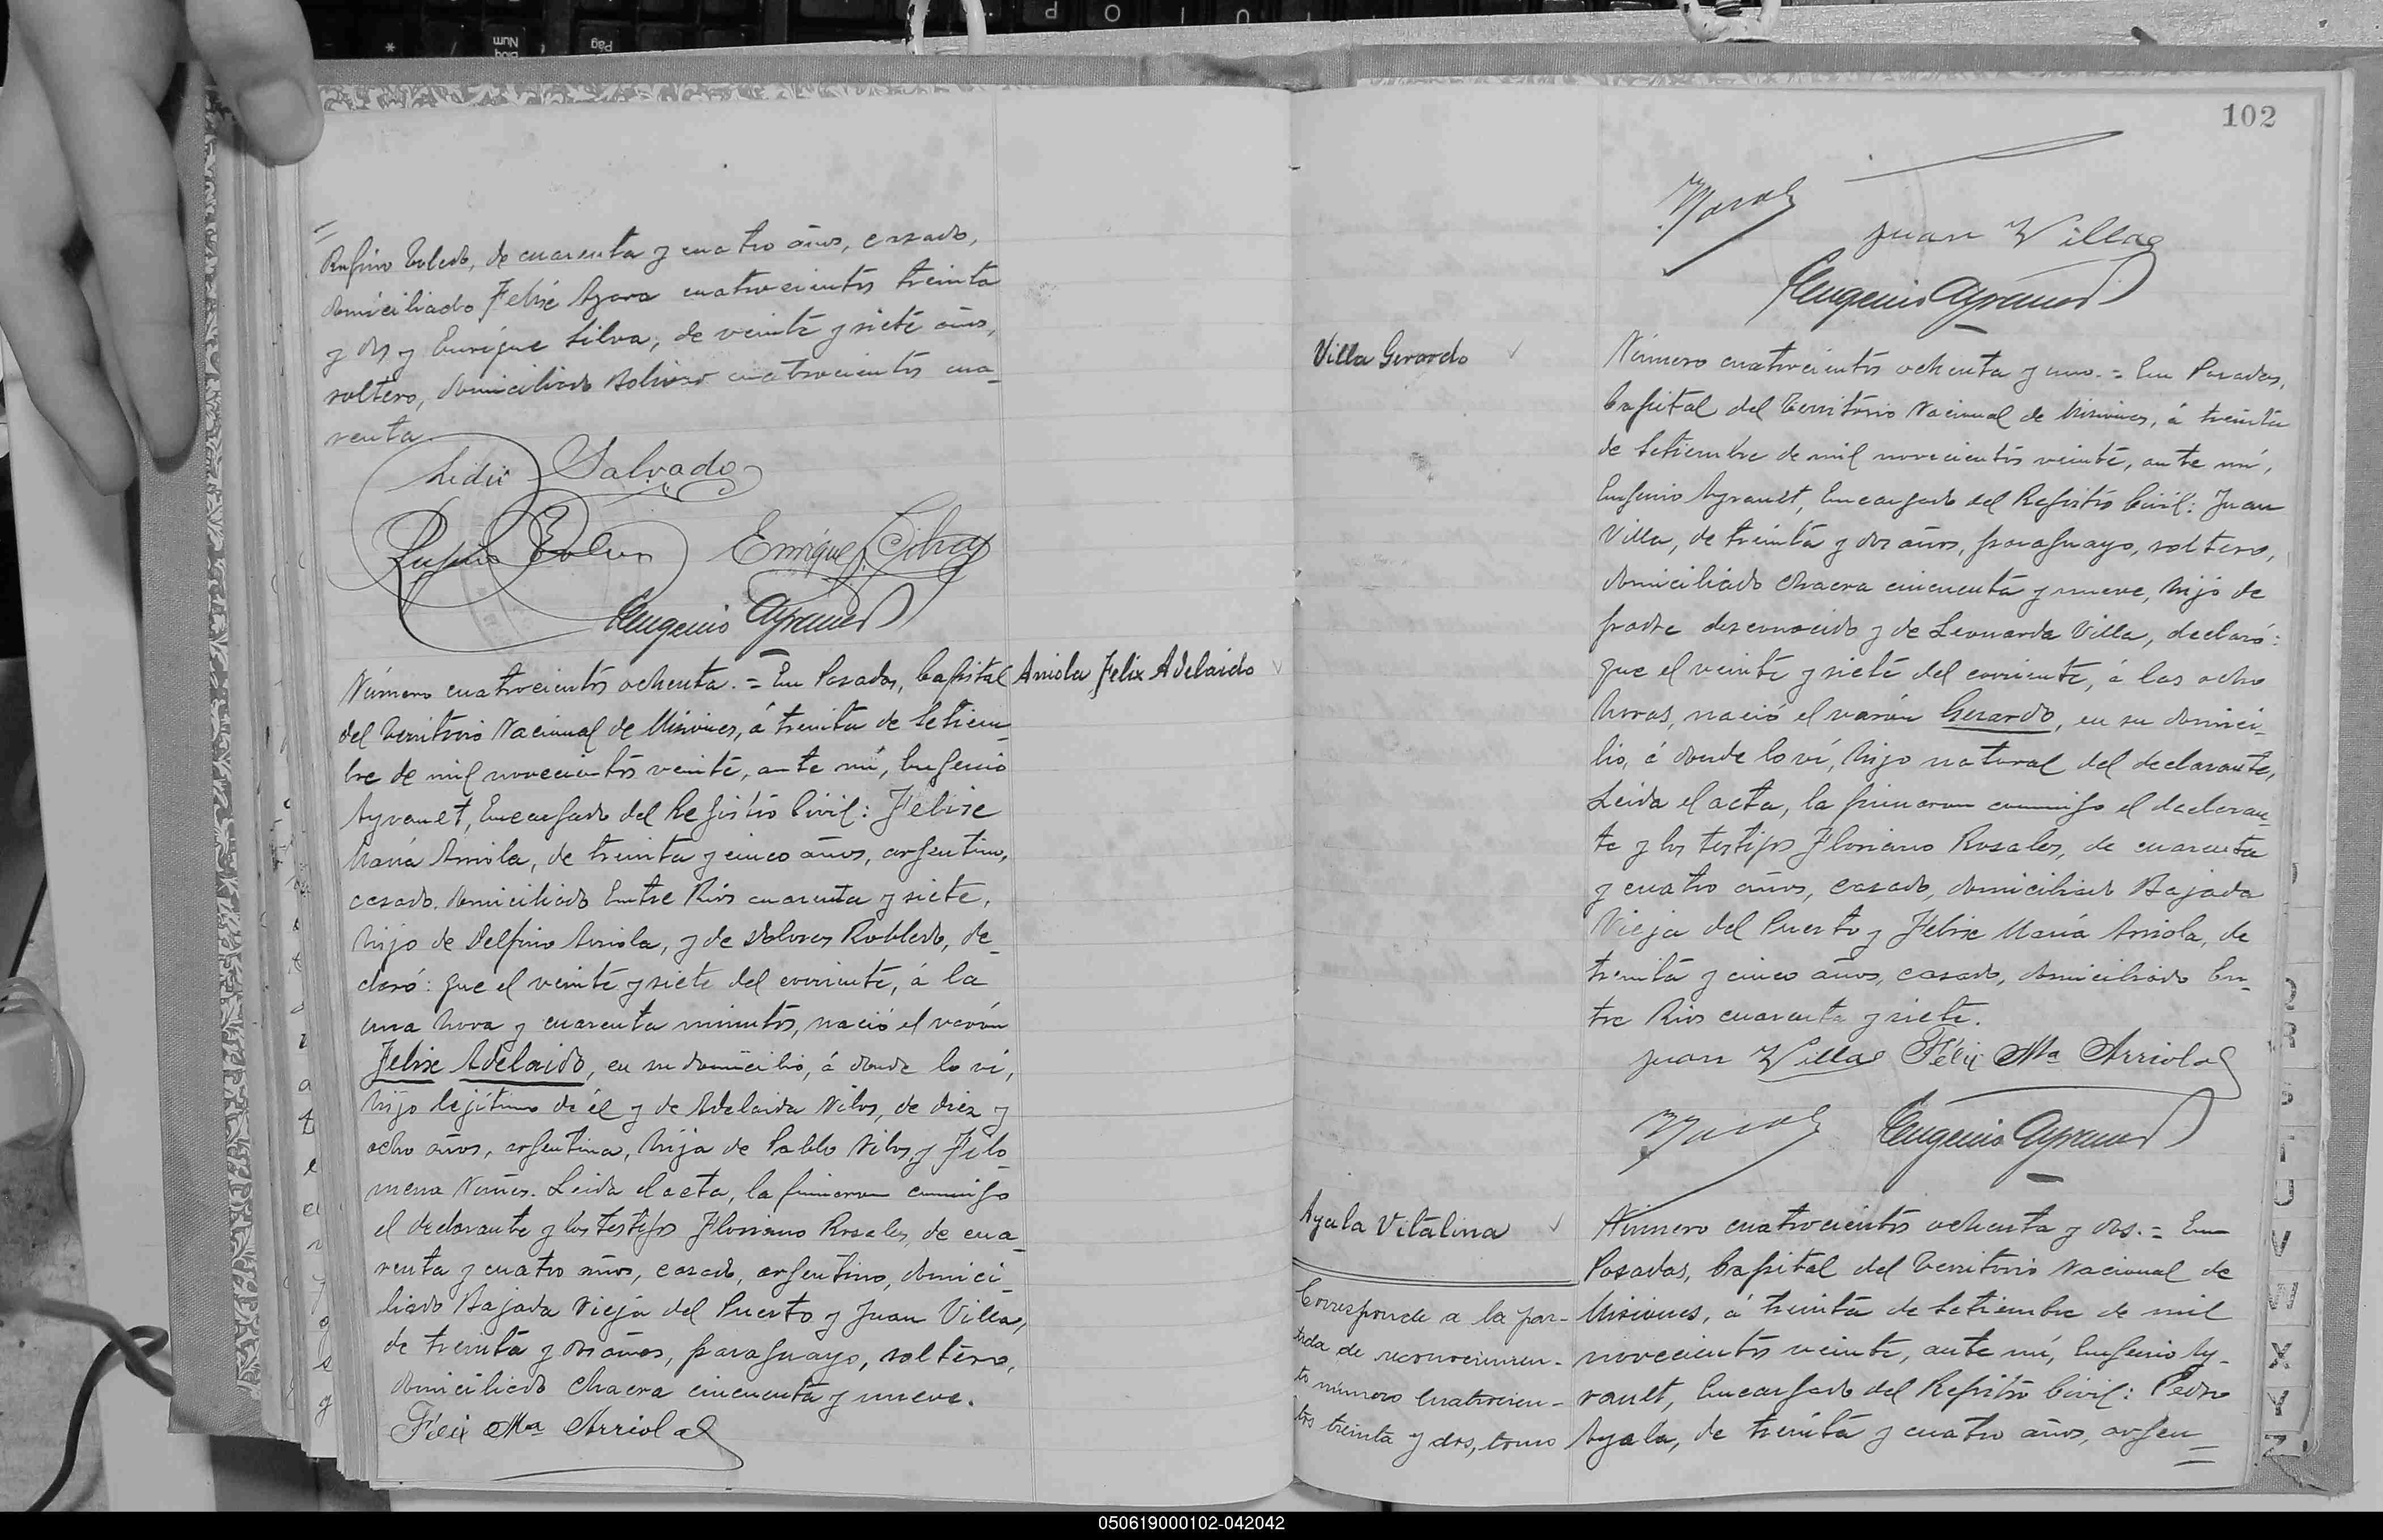 Rufino Toledo, de cuarenta y cuatro años, casado,
domiciliado Felix Azara cuatrocientos treinta
y dos y Enrique Silva, de veinte y siete años,
soltero, domiciliado Bolivar cuatrocientos cua-
renta.
Salvado
Enrique Silva
Eugenio Ayrault
Número cuatrocientos ochenta. = En Posadas, Capital
del Territorio Nacional de Misiones, á treinta de Setiem-
bre de mil novecientos veinte, ante mí, Eugenio
Ayrault, Encargado del Registro Civil: Felix
María Arriola, de treinta y cinco años, argentino,
casado, domiciliado Entre Rios cuarenta y siete,
hijo de Delfino Arriola, y de Dolores Robledo, de-
claró: que el veinte y siete del corriente, á la
una hora y cuarenta minutos, nació el varón
Felix Adelaido, en su domicilio, á donde lo ví,
hijo legítimo de él y de Adelaida Vilos, de diez y
ocho años, argentina, hija de Pablo Vilos, y Filo-
mena Nuñes. Leida el acta, la firmaron conmigo
el declarante y los testigos Floriano Rosales, de cua-
renta y cuatro años, casado, argentino, domici-
liado Bajada Vieja del Puerto y Juan Villa,
de treinta y dos años, paraguayo, soltero,
domiciliado Chacra cincuenta y nueve.
Félix Ma Arriola
Arriola Felix Adelaido
102
Juan Villa
Eugenio Ayrault
Villa Gerardo
Número cuatrocientos ochenta y uno. = En Posadas,
Capital del Territorio Nacional de Misiones, á treinta
de Setiembre de mil novecientos veinte, ante mí,
Eugenio Ayrault, Encargado del Registro Civil: Juan
Villa, de treinta y dos años, paraguayo, soltero,
domiciliado Chacra cincuenta y nueve, hijo de
padre desconocido y de Leonarda Villa, declaró:
que el veinte y siete del corriente, á las ocho
horas, nació el varón Gerardo, en su domici-
lio, á donde lo ví, hijo natural del declarante,
Leida el acta, la firmaron conmigo el declaran-
te y los testigos Floriano Rosales, de cuarenta
y cuatro años, casado, domiciliado Bajada
Vieja del Puerto y Felix María Arriola, de
treinta y cinco años, casado, domiciliado En-
tre Rios cuarenta y siete.
Juan Villa Félix Ma Arriola
Eugenio Ayrault
Ayala Vitalina
Corresponde a la par-
tida de reconocimien-
to número cuatrocien-
tos treinta y dos, tomo
Número cuatrocientos ochenta y dos. = En
Posadas, Capital del Territorio Nacional de
Misiones, á treinta de Setiembre de mil
novecientos veinte, ante mí, Eugenio Ay-
rault, Encargado del Registro Civil: Pedro
Ayala, de treinta y cuatro años, argen-
050619000102-042042